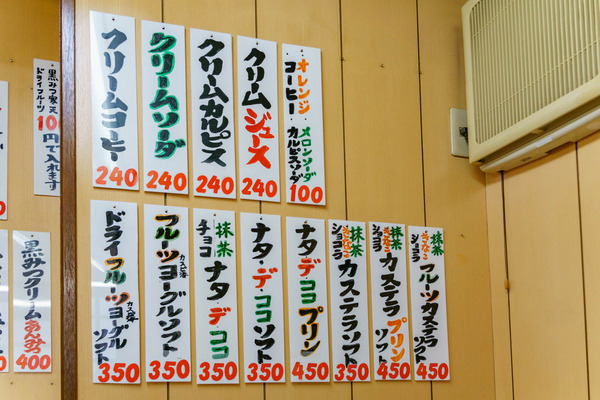 クリームコーヒー
240
クリームソーダ
240
クリームカルピス
240
クリームジュース
240
オレンジ
コーヒー
メロンソーダ
カルピスソーダ
100
黒みつ寒天
ドライフルーツ
円で入れます
ドライフルーツヨーグル
ソフト
350
フルーツヨーグルソフト
350
抹茶
チョコ
ナタ・デココ
350
ナタ・デ・ココソフト
350
ナタ・デココプリン
450
抹茶
きなこ
ショコラ
カステラソフト
350
抹茶
きなこ
ショコラ
カステラプリン
ソフト
450
抹茶
きなこ
ショコラ
フルーツカステラ
ソフト
450
黒みつクリーム
あんみつ
400